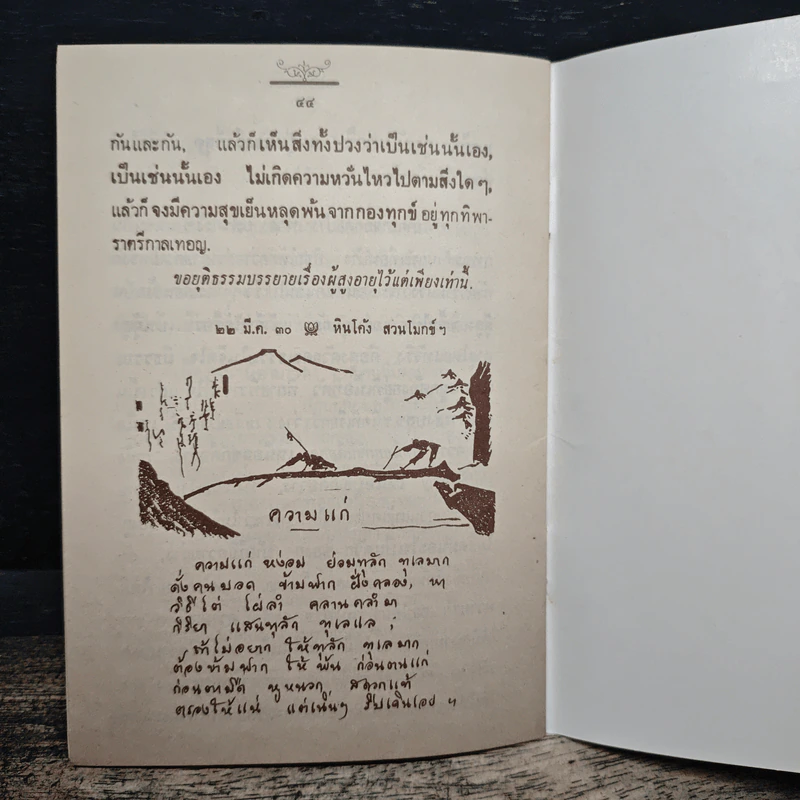 ๔๔
กันและกัน, แล้วก็เห็นสิ่งทั้งปวงว่าเป็นเช่นนั้นเอง,
เป็นเช่นนั้นเอง ไม่เกิดความหวั่นไหวไปตามสิ่งใด ๆ,
แล้วก็จงมีความสุขเย็นหลุดพ้นจากกองทุกข์ อยู่ทุกทิพา-
ราตรีกาลเทอญ.
ขอยุติธรรมบรรยายเรื่องผู้สูงอายุไว้แต่เพียงเท่านี้.
๒๒ มี.ค. ๓๐ หินโค้ง สวนโมกข์ ฯ
ความแก่
ความแก่ หง่อม ย่อมทุลัก ทุเลมาก
ดั่งคนบอด ข้ามฟาก ฝั่งคลอง, หา
วิธีไต่ ไผ่ลำ คลานคลำมา
กิริยา แสนทุลัก ทุเลแล ;
ถ้าไม่อยาก ให้ทุลัก ทุเลมาก
ต้องข้ามฟาก ให้ พ้น ก่อนตนแก่
ก่อนตามืด หูหนวก สะดวกแท้
ตรองให้แน่ แต่เนิ่นๆ รีบเดินเอย ฯ